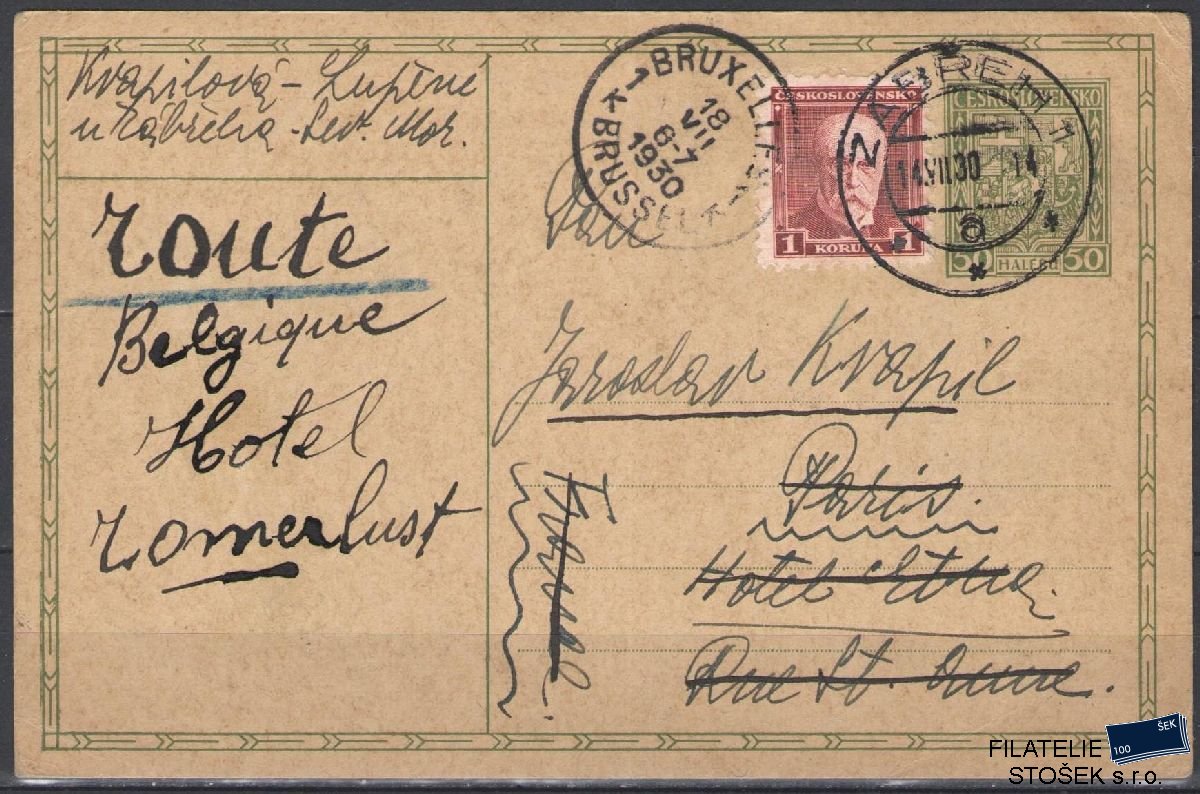 Kvapilová - Lupěne
u Zábřeha - Sev. Mor.
BRUXELLES 1
18
VII
6-7
1930
1 BRUSSEL
ČESKOSLOVENSKO
1 KORUNA 1
ZÁBŘEH 1
14.VII.30 14
a
ČESKOSLOVENSKO
50 HALÉŘŮ 50
route
Belgique
Hotel
Zomerlust
Pan
Jaroslav Kvapil
Paris.
Hotel Etna.
Rue St. Anne.
France.
FILATELIE
STOŠEK s.r.o.
100
ŠEK